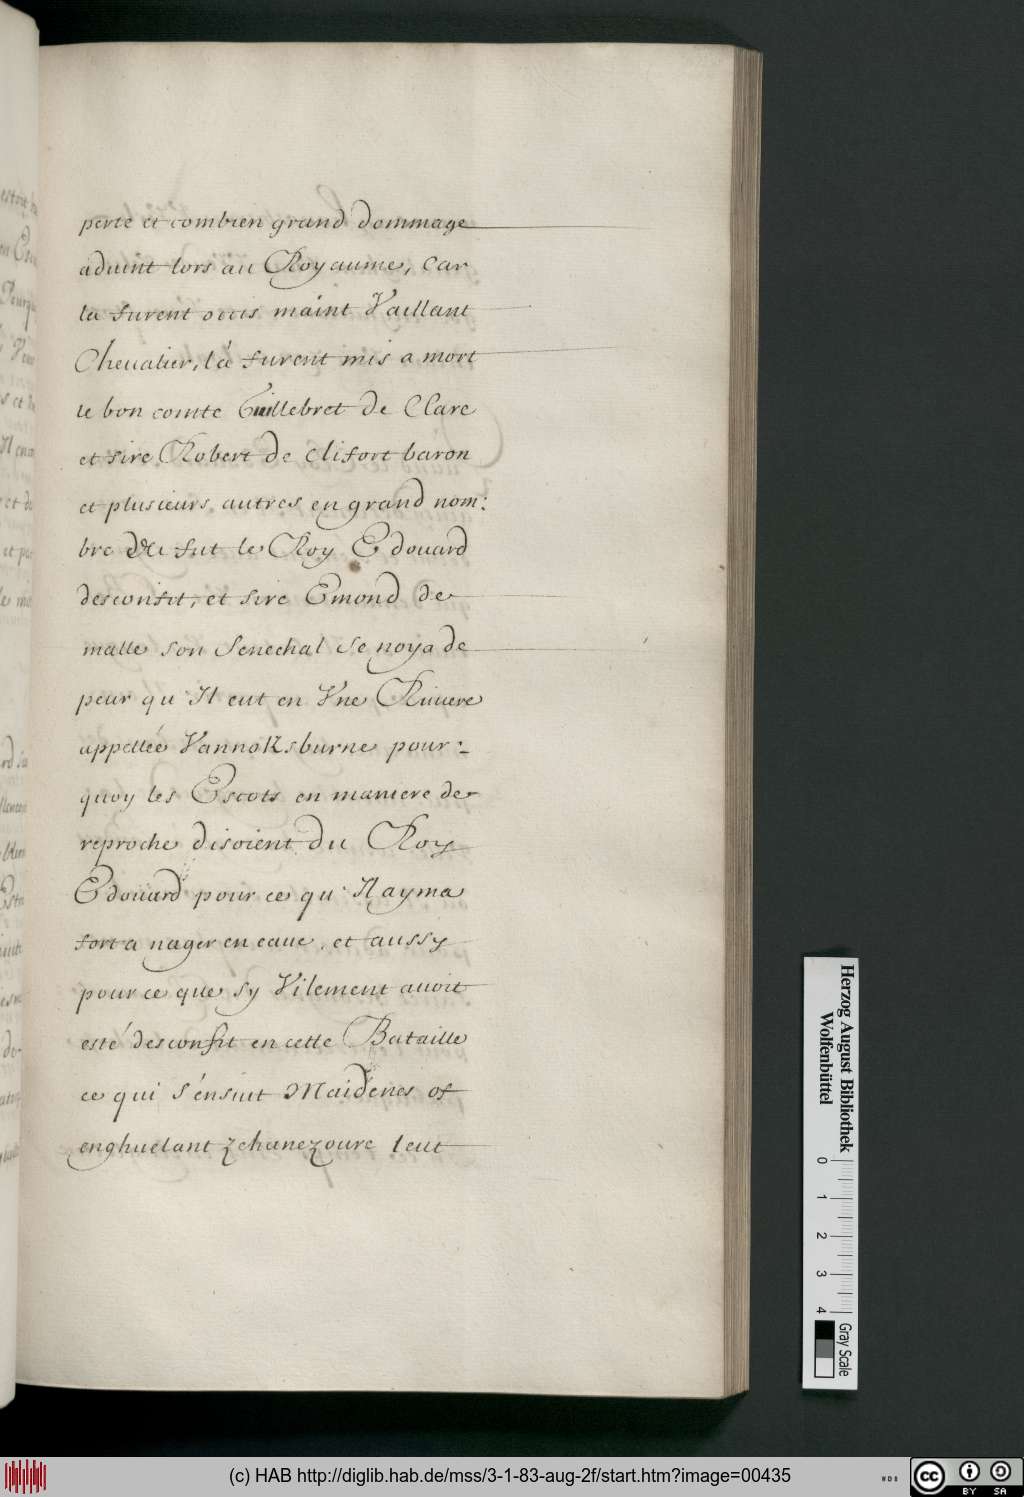 perte et combien grand dommage
aduint lors au Royaume, Car
la furent occis maint Vaillant
Chevalier, lá furent mis a mort
le bon comte Guillebret de Clare
et sire Robert de Clifort baron
et plusieurs autres en grand nom:
bre et fut le Roy Edouard
desconfit, et sire Emond de
malle son Senechal se noya de
peur qu'Il eut en Vne Riuiere
appellée VannoKsburne pour:
quoy les Escots en maniere de
reproche disoient du Roy
Edouard pour ce qu'Il ayma
fort a nager en eaue, et aussy
pour ce que sy Vilement auoit
esté desconfit en cette Bataille
ce qui s'énsuit Maidenes of
enghuelant zehanezoure leut
Herzog August Bibliothek
Wolfenbüttel
0 1 2 3 4
Gray Scale
(c) HAB http://diglib.hab.de/mss/3-1-83-aug-2f/start.htm?image=00435
WDB
cc BY SA